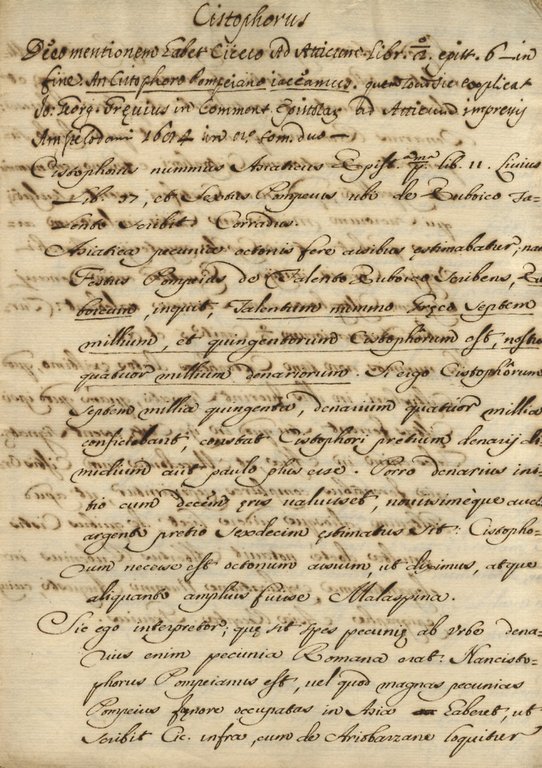 Cistophorus
De eo mentionem habet Cicero ad Atticum Libr. 2.º epist. 6 in
fine. An Cistophoro Pompeiano iaceamus. quem locum sic explicat
Jo. Georg. Grevius in Comment. Epistolar. ad Atticum impressis
Amstelodami 1684 in 8.º tom. duo
Cistophorus nummus Asiaticus Epist. p.ma lib. 11. Livius
lib. 37, et Sextus Pompeius ubi de Euboico ta-
lento scribit Corradus.
Asiatica pecunia octonis fere assibus ęstimabatur, nam
Festus Pompeius de Talento Euboico scribens, Eu
boicum, inquit, Talentum nummo Gręco septem
millium, et quingentorum Cistophorum est, nostro
quatuor millium denariorum. Si ergo Cistophorum
septem millia quingenta, denarium quatuor millia
conficiebant, constat Cistophori pretium denarij di
midium aut paulo plus esse. Porro denarius ini-
tio cum decem ęris valuisset, novissimeque auct
argenti pretio sexdecim ęstimatus sit: Cistopho-
rum necesse est octonum assium ut diximus, atque
aliquando amplius fuisse Malaspina.
Sic ego interpretor, quę sit spes pecunię ab Urbe dena
rius enim pecunia Romana erat: Nam cisto-
phorus Pompeianus est, vel quod magnas pecunias
Pompeius fęnore occupatas in Asia haberet, ut
scribit Cic. infra, cum de Ariobarzane loquitur